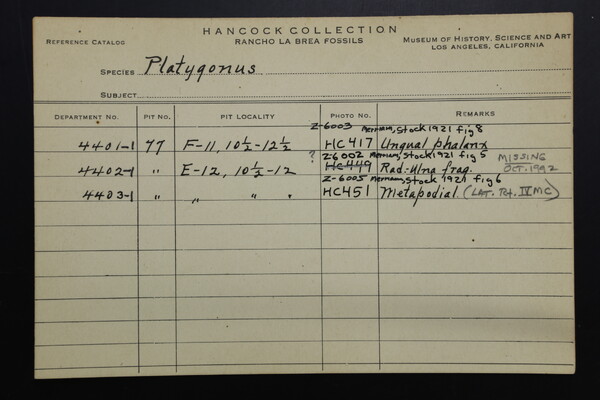 HANCOCK COLLECTION
REFERENCE CATALOG RANCHO LA BREA FOSSILS MUSEUM OF HISTORY, SCIENCE AND ART
LOS ANGELES, CALIFORNIA
SPECIES Platygonus
SUBJECT
DEPARTMENT NO. PIT NO. PIT LOCALITY PHOTO NO. REMARKS
Z-6003 Merriam, Stock 1921 fig 8
4401-1 77 F-11, 10½-12½ HC417 Ungual phalanx
? Z6002 Merriam, Stock 1921 fig 5 MISSING
4402-1 " E-12, 10½-12 HC449 Rad.-Ulna frag. OCT. 1992
Z-6005 Merriam, Stock 1921 fig 6
4403-1 " " " . HC451 Metapodial (LAT. Rt. IV MC)